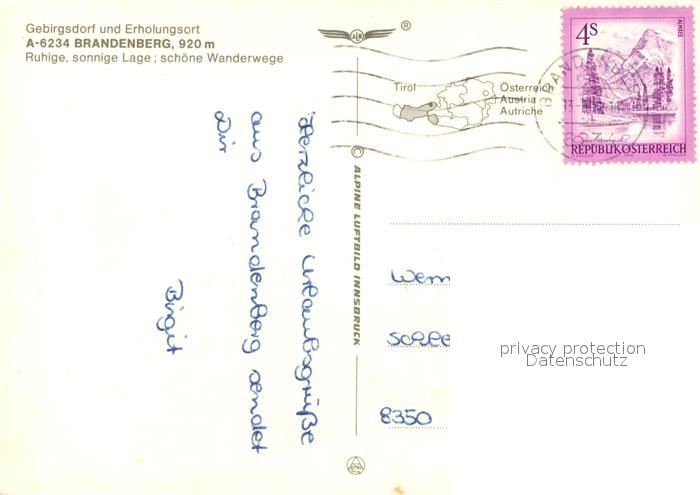 Gebirgsdorf und Erholungsort
A-6234 BRANDENBERG, 920 m
Ruhige, sonnige Lage; schöne Wanderwege
ALB
®
Tirol
Österreich
Austria
Autriche
4S
ALMSEE
REPUBLIK ÖSTERREICH
Herzliche Urlaubsgrüße
aus Brandenberg sendet
Dir
Birgit
© ALPINE LUFTBILD INNSBRUCK
8350
privacy protection
Datenschutz